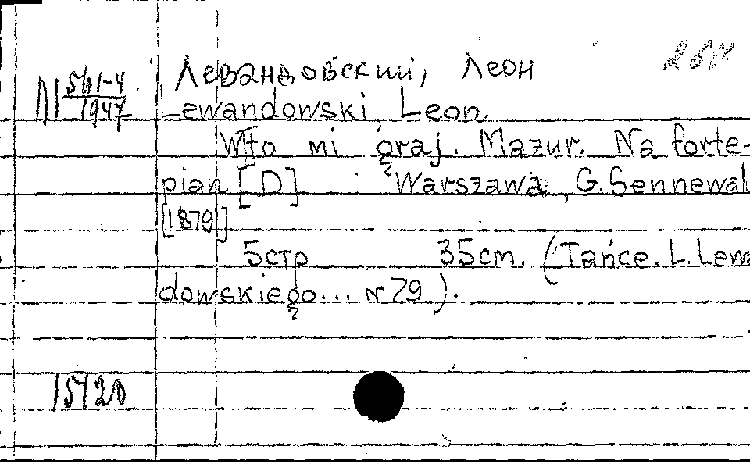 Левандовский, Леон
М 5/61-4
1947
Lewandowski Leon
W to mi graj. Mazur. Na forte-
pian [D] Warszawa, G. Sennewal
[1879]
5 стр 35 cm. (Tańce. L. Lewan
dowskiego... N 79).
15420